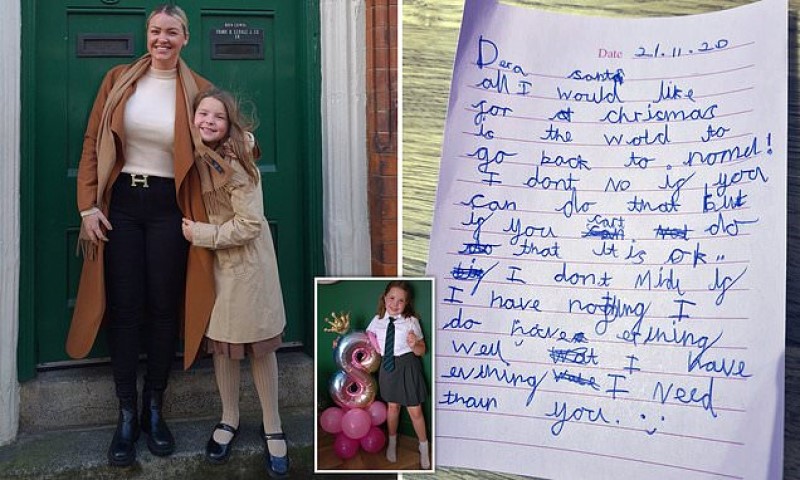 Date 21.11.20
Dera santa
all I would like
for chrismas
is the wold to
go back to nomel!
I dont no if you
can do that but
if you cart do
that it is ok..
I dont Midu if
I have nothing I
do have erining
well I have
evining I Need
than you.
8